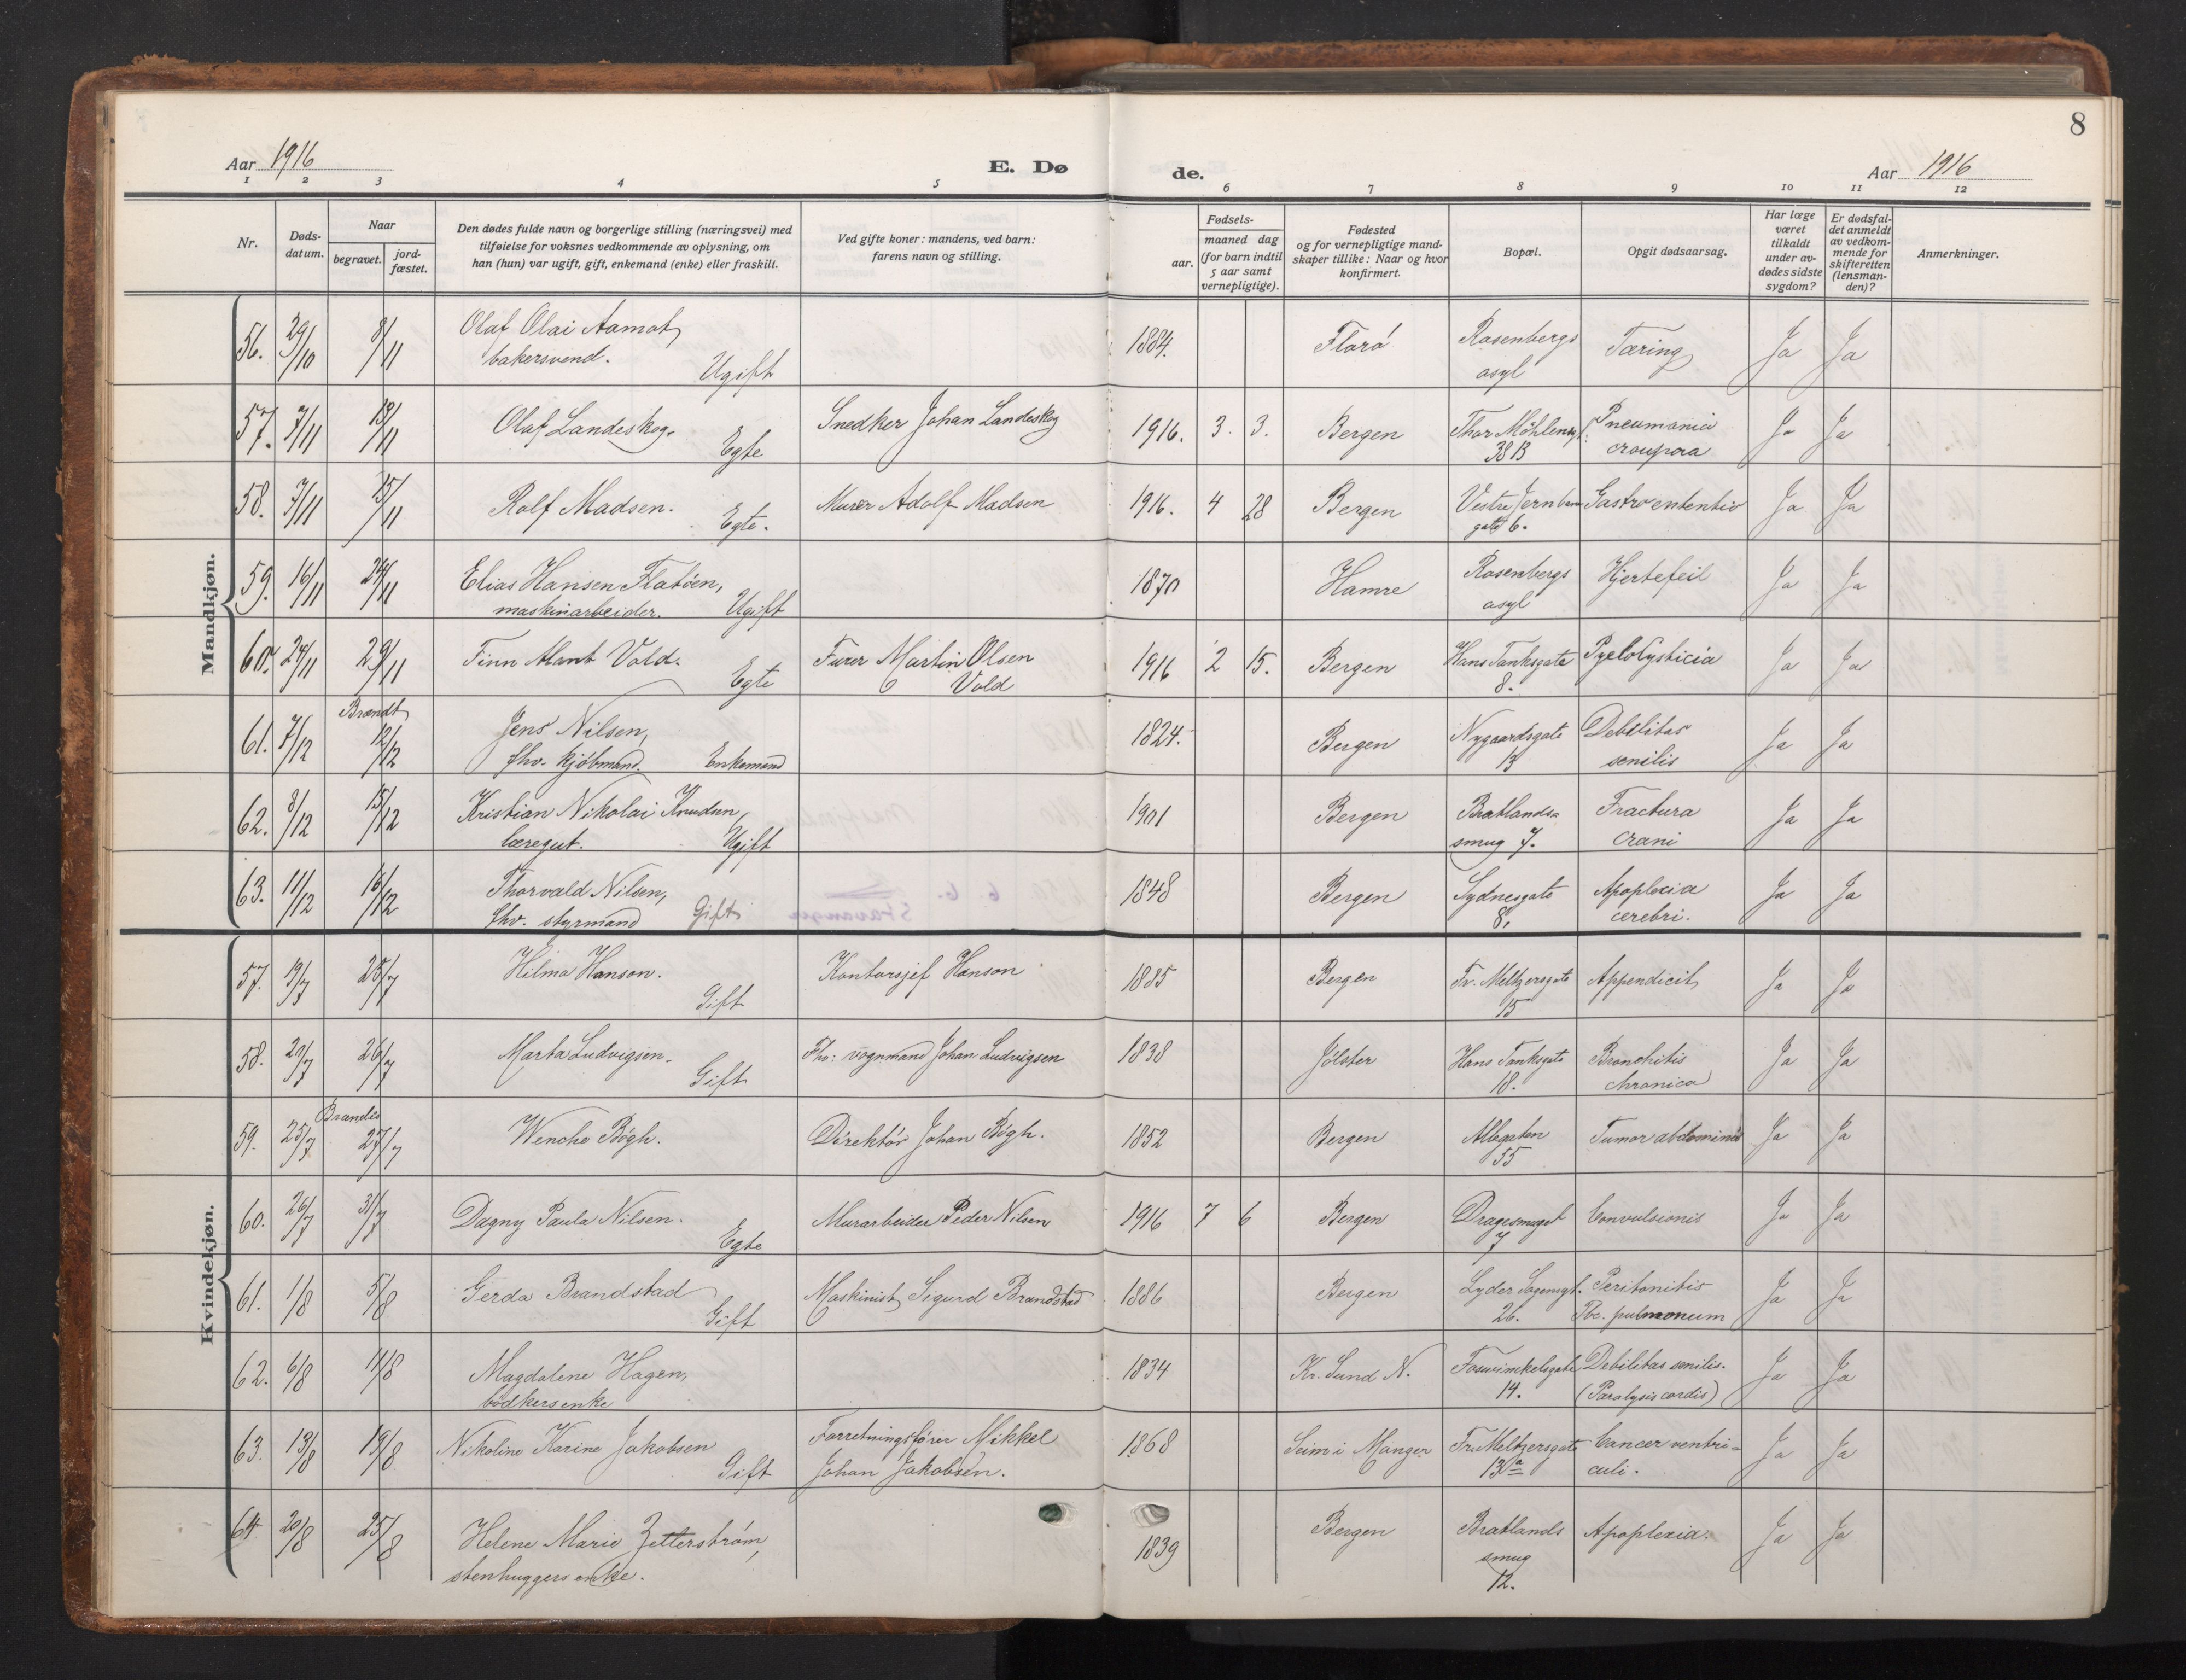 8
Aar 1916 E. Dø de. Aar 1916
1 2 3 4 5 6 7 8 9 10 11 12
Nr.
Døds-
datum.
Naar
begravet.
jord-
fæstet.
Den dødes fulde navn og borgerlige stilling (næringsvei) med
tilføielse for voksnes vedkommende av oplysning, om
han (hun) var ugift, gift, enkemand (enke) eller fraskilt.
Ved gifte koner: mandens, ved barn:
farens navn og stilling.
Fødsels-
aar.
maaned dag
(for barn indtil
5 aar samt
vernepligtige).
Fødested
og for vernepligtige mand-
skaper tillike: Naar og hvor
konfirmert.
Bopæl.
Opgit dødsaarsag.
Har læge
været
tilkaldt
under av-
dødes sidste
sygdom?
Er dødsfal-
det anmeldt
av vedkom-
mende for
skifteretten
(lensman-
den)?
Anmerkninger.
Mandkjøn.
56. 29/10 8/11 Olaf Olai Aamot, 1884. Florø Rosenbergs Tæring Ja Ja
bakersvend. Ugift asyl
57. 7/11 13/11 Olaf Landeskog. Egte Snedker Johan Landeskog 1916. 3. 3. Bergen Thor Møhlensgt. Pneumonia Ja Ja
38 B crouposa
58. 7/11 15/11 Rolf Madsen. Egte. Murer Adolf Madsen 1916. 4 28 Bergen Vestre Jernbane Gastroententio Ja Ja
gate 6.
59. 16/11 24/11 Elias Hansen Flatøen, 1870 Hamre Rosenbergs Hjertefeil Ja Ja
maskinarbeider. Ugift asyl
60. 24/11 29/11 Finn Mant Vold. Egte Furer Martin Olsen 1916 2 15. Bergen Hans Tanksgate Pyelocysticia Ja Ja
Vold 8.
61. 7/12 Brændt 12/12 Jens Nilsen, 1824. Bergen Nygaardsgate Debilitas Ja Ja
fhv. kjøbmand. Enkemand 13 senilis
62. 8/12 15/12 Kristian Nikolai Knudsen, 1901 Bergen Bratlands- Fractura Ja Ja
læregut. Ugift smug 7. crani
63. 11/12 16/12 Thorvald Nilsen, 1848 Bergen Sydnesgate Apoplexia Ja Ja
fhv. styrmand Gift 8. cerebri.
Kvindekjøn.
57. 19/7 25/7 Hilma Hanson. Gift Kontorsjef Hanson 1885 Bergen Fr. Meltzersgate Appendicit Ja Ja
15
58. 20/7 26/7 Marta Ludvigsen. Gift Fhv. vognmand Johan Ludvigsen 1838 Jølster Hans Tanksgate Bronchitis Ja Ja
18. chronica
59. 25/7 Brændt 27/7 Wenche Bøgh. Direktør Johan Bøgh. 1852 Bergen Allegaten Tumor abdominis Ja Ja
55
60. 26/7 31/7 Dagny Paula Nilsen. Egte Murarbeider Peder Nilsen 1916 7 6 Bergen Dragesmuget Convulsionis Ja Ja
7
61. 1/8 5/8 Gerda Brandstad Gift Maskinist Sigurd Brandstad 1886 Bergen Lyder Sagensgt. Peritonitis Ja Ja
26. Tbc. pulmonum
62. 6/8 11/8 Magdalene Hagen, 1834 Kr. Sund N. Fosswinkelsgate Debilitas senilis. Ja Ja
bødkersenke 14. (Paralysis cordis)
63. 13/8 19/8 Nikoline Karine Jakobsen Gift Forretningsfører Mikkel 1868 Seim i Manger Fr. Meltzersgate Cancer ventri- Ja Ja
Johan Jakobsen. 13a culi.
64. 20/8 25/8 Helene Marie Zetterstrøm, 1839 Bergen Bratlands Apoplexia. Ja Ja
stenhuggers enke. smug
12.